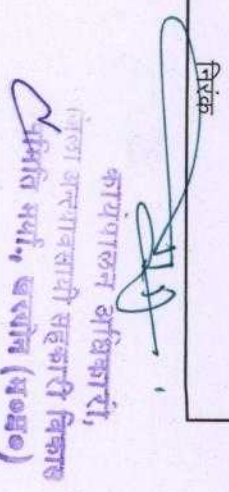 निरंक
कार्यपालन अधिकारी,
जिला अन्त्यावसायी सहकारी विकास
समिति मर्या., खरगोन (म०प्र०)